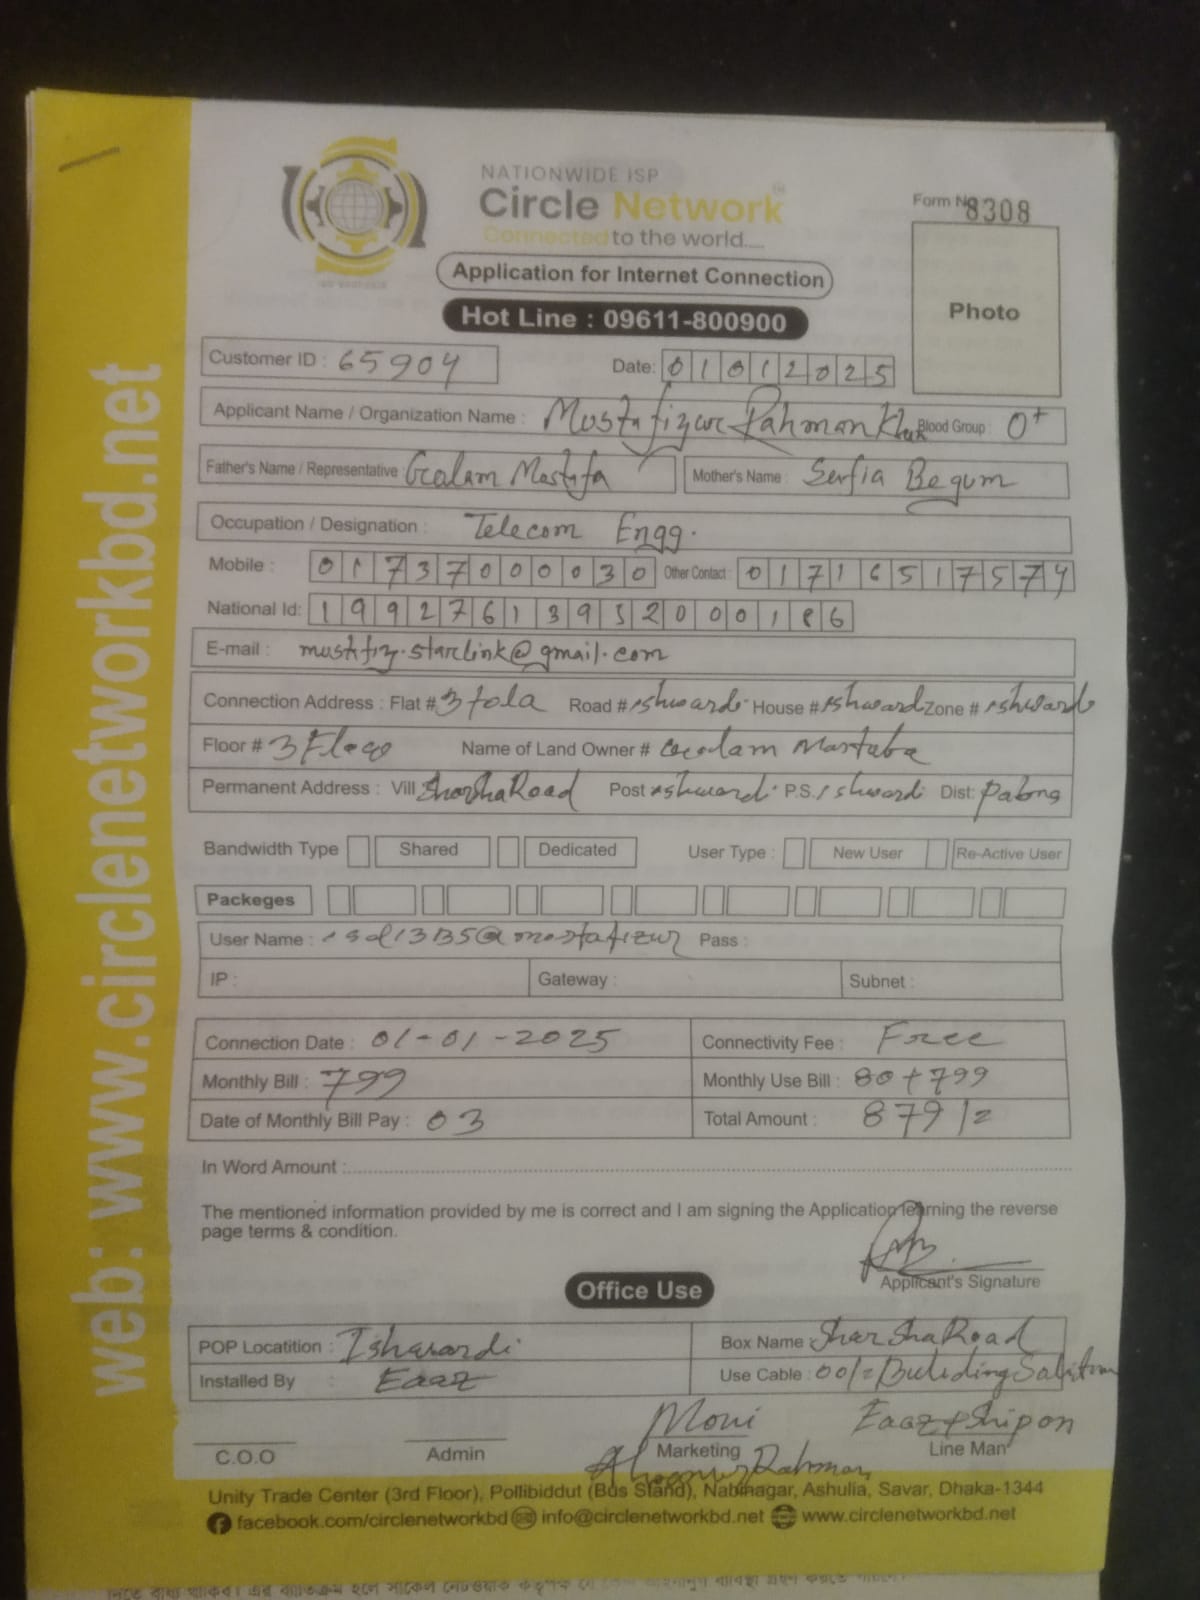 NATIONWIDE ISP
Circle Network™
Connected to the world....
Form No 8308
Application for Internet Connection
Hot Line : 09611-800900
Photo
Customer ID : 65904 Date: 01012025
Applicant Name / Organization Name : Mostafizur Rahman Khan Blood Group : O+
Father's Name / Representative : Golam Mostafa Mother's Name : Serfia Begum
Occupation / Designation : Telecom Engg.
Mobile : 01737000030 Other Contact : 01716517574
National Id: 19927613952000186
E-mail : mustafiz.starlink@gmail.com
Connection Address : Flat # 3 tola Road # ishwardi House # ishwardi Zone # ishwardi
Floor # 3 Floor Name of Land Owner # Golam Mostafa
Permanent Address : Vill Sharsha Road Post ishwardi P.S. ishwardi Dist: Pabna
Bandwidth Type Shared Dedicated User Type : New User Re-Active User
Packeges
User Name : isd1335@mostafizur Pass :
IP : Gateway : Subnet :
Connection Date : 01-01-2025 Connectivity Fee : Free
Monthly Bill : 799 Monthly Use Bill : 80+799
Date of Monthly Bill Pay : 03 Total Amount : 879/=
In Word Amount :
The mentioned information provided by me is correct and I am signing the Application learning the reverse
page terms & condition.
Applicant's Signature
Office Use
POP Locatition : Ishwardi Box Name : Shar Sha Road
Installed By : Eaaz Use Cable : 00/=
Moni Eaaz & Shipon
C.O.O Admin Marketing Line Man
Rahman
Unity Trade Center (3rd Floor), Pollibiddut (Bus Stand), Nabinagar, Ashulia, Savar, Dhaka-1344
facebook.com/circlenetworkbd info@circlenetworkbd.net www.circlenetworkbd.net
web: www.circlenetworkbd.net